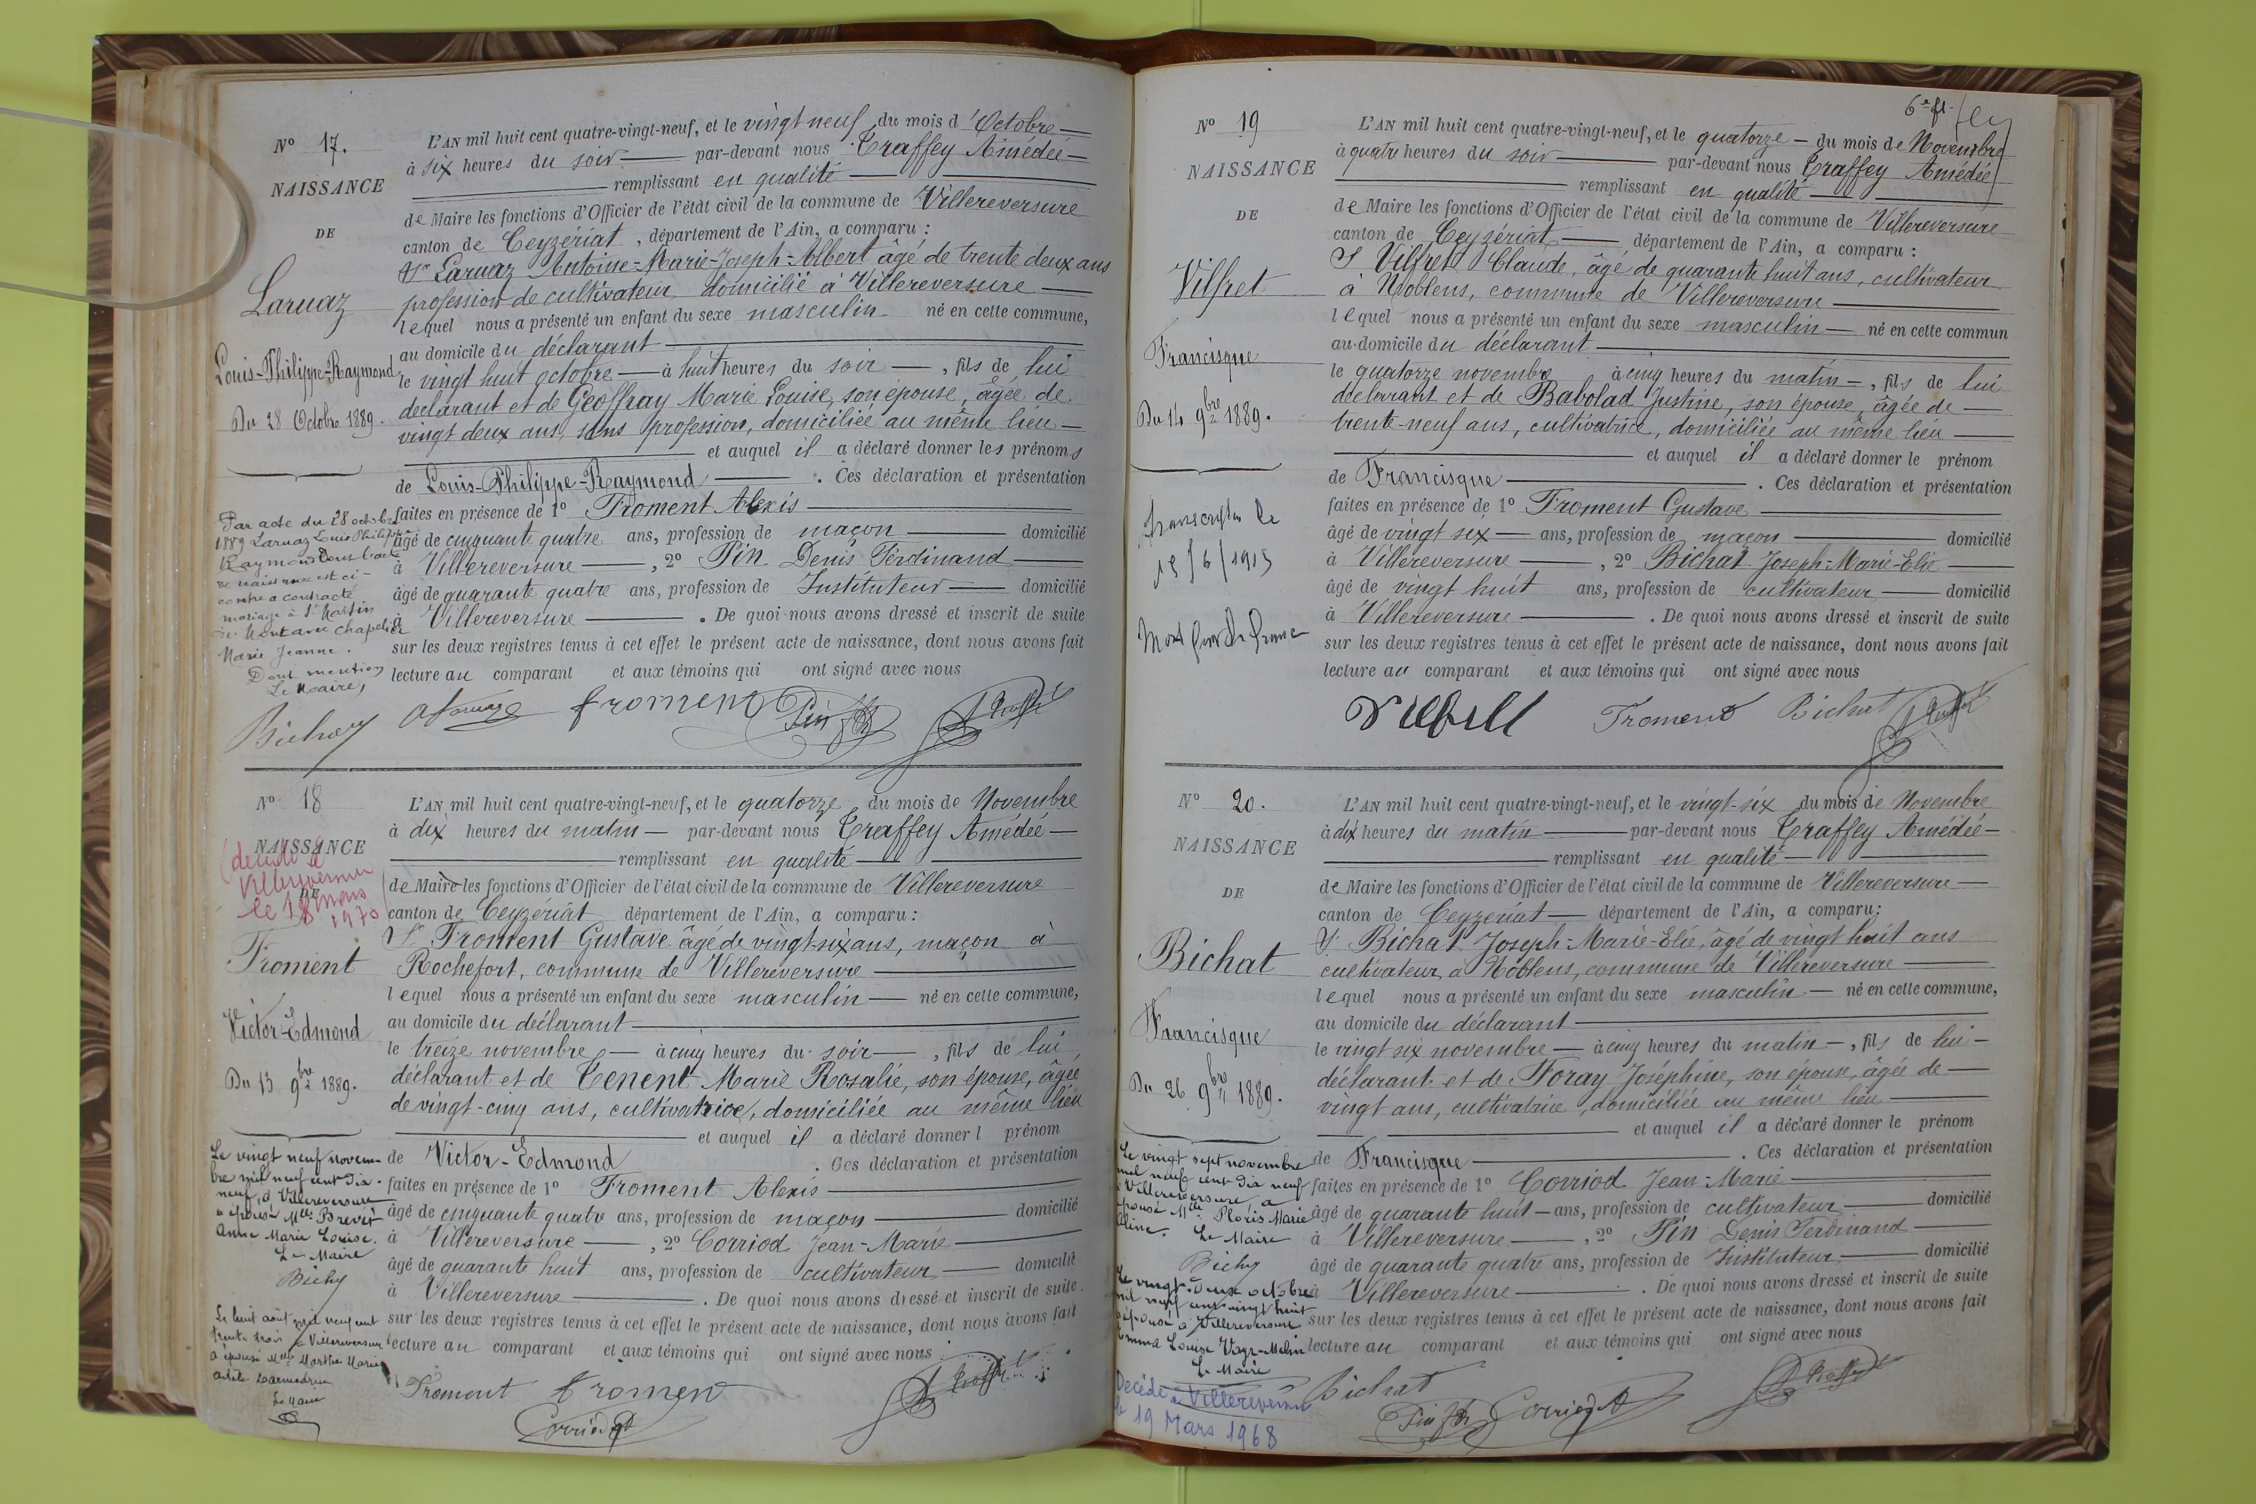 N° 17.
NAISSANCE
DE
Laruaz
Louis-Philippe-Raymond
Du 28 Octobre 1889.
Par acte du 28 octobre
1889 Laruaz Louis Philippe
Raymond dont l'acte
de naissance est ci-
contre a contracté
mariage à St Martin
du Mont avec Chapelier
Marie Jeanne.
Dont mention
Le Maire,
Bichay
L'AN mil huit cent quatre-vingt-neuf, et le vingt neuf du mois d'Octobre
à six heures du soir par-devant nous Traffey Amédée
remplissant en qualité
de Maire les fonctions d'Officier de l'état civil de la commune de Villereversure
canton de Ceyzériat, département de l'Ain, a comparu :
Sr Laruaz Antoine-Marie-Joseph-Albert âgé de trente deux ans
profession de cultivateur domicilié à Villereversure
lequel nous a présenté un enfant du sexe masculin né en cette commune,
au domicile du déclarant
le vingt huit octobre à huit heures du soir, fils de lui
déclarant et de Geoffray Marie Louise, son épouse, âgée de
vingt deux ans, sans profession, domiciliée au même lieu
et auquel il a déclaré donner les prénoms
de Louis-Philippe-Raymond. Ces déclaration et présentation
faites en présence de 1° Froment Alexis
âgé de cinquante quatre ans, profession de maçon domicilié
à Villereversure, 2° Pin Denis Ferdinand
âgé de quarante quatre ans, profession de Instituteur domicilié
à Villereversure. De quoi nous avons dressé et inscrit de suite
sur les deux registres tenus à cet effet le présent acte de naissance, dont nous avons fait
lecture au comparant et aux témoins qui ont signé avec nous
A Laruaz froment Pin Traffey
N° 18
NAISSANCE
DE
(décédé à
Villereversure
le 18 mars
1970
Froment
Victor-Edmond
Du 13 9bre 1889.
Le vingt neuf novem-
bre mil neuf cent dix-
neuf, à Villereversure
a épousé Mlle Brevet
Anne Marie Louise.
Le Maire
Bichy
Le huit août mil neuf cent
trente trois à Villereversure
a épousé Mlle Marthe Marie
Le Maire
L'AN mil huit cent quatre-vingt-neuf, et le quatorze du mois de Novembre
à dix heures du matin par-devant nous Traffey Amédée
remplissant en qualité
de Maire les fonctions d'Officier de l'état civil de la commune de Villereversure
canton de Ceyzériat département de l'Ain, a comparu :
Sr Froment Gustave âgé de vingt-six ans, maçon à
Rochefort, commune de Villereversure
lequel nous a présenté un enfant du sexe masculin né en cette commune,
au domicile du déclarant
le treize novembre à cinq heures du soir, fils de lui
déclarant et de Tenent Marie Rosalie, son épouse, âgée
de vingt-cinq ans, cultivatrice, domiciliée au même lieu
et auquel il a déclaré donner l prénom
de Victor-Edmond. Ces déclaration et présentation
faites en présence de 1° Froment Alexis
âgé de cinquante quatre ans, profession de maçon domicilié
à Villereversure, 2° Corriod Jean-Marie
âgé de quarante huit ans, profession de cultivateur domicilié
à Villereversure. De quoi nous avons dressé et inscrit de suite
sur les deux registres tenus à cet effet le présent acte de naissance, dont nous avons fait
lecture au comparant et aux témoins qui ont signé avec nous
Froment froment Traffey
Corriod
6e f.
N° 19
NAISSANCE
DE
Vilfret
Francisque
Du 14 9bre 1889.
Transcription le
15/6/1915
Mort pour la france
L'AN mil huit cent quatre-vingt-neuf, et le quatorze du mois de Novembre
à quatre heures du soir par-devant nous Traffey Amédée
remplissant en qualité
de Maire les fonctions d'Officier de l'état civil de la commune de Villereversure
canton de Ceyzériat département de l'Ain, a comparu :
S Vilfret Claude, âgé de quarante huit ans, cultivateur
à Noblens, commune de Villereversure
lequel nous a présenté un enfant du sexe masculin né en cette commun
au domicile du déclarant
le quatorze novembre à cinq heures du matin, fils de lui
déclarant et de Babolad Justine, son épouse, âgée de
trente-neuf ans, cultivatrice, domiciliée au même lieu
et auquel il a déclaré donner le prénom
de Francisque. Ces déclaration et présentation
faites en présence de 1° Froment Gustave
âgé de vingt six ans, profession de maçon domicilié
à Villereversure, 2° Bichat Joseph-Marie-Elie
âgé de vingt huit ans, profession de cultivateur domicilié
à Villereversure. De quoi nous avons dressé et inscrit de suite
sur les deux registres tenus à cet effet le présent acte de naissance, dont nous avons fait
lecture au comparant et aux témoins qui ont signé avec nous
Froment Bichat Traffey
N° 20.
NAISSANCE
DE
Bichat
Francisque
Du 26 9bre 1889.
Le vingt sept novembre
mil neuf cent dix neuf
à Villereversure a
épousé Mlle Ploris Marie
Le Maire
Bichy
Le vingt-deux octobre
mil neuf cent vingt huit
a épousé à Villereversure
Emma Louise
Le Maire
Décédé à Villereversure
le 19 Mars 1968
L'AN mil huit cent quatre-vingt-neuf, et le vingt-six du mois de Novembre
à dix heures du matin par-devant nous Traffey Amédée
remplissant en qualité
de Maire les fonctions d'Officier de l'état civil de la commune de Villereversure
canton de Ceyzériat département de l'Ain, a comparu :
S. Bichat Joseph-Marie-Elie, âgé de vingt huit ans
cultivateur, à Noblens, commune de Villereversure
lequel nous a présenté un enfant du sexe masculin né en cette commune,
au domicile du déclarant
le vingt six novembre à cinq heures du matin, fils de lui
déclarant et de Foray Joséphine, son épouse, âgée de
vingt ans, cultivatrice, domiciliée au même lieu
et auquel il a déclaré donner le prénom
de Francisque. Ces déclaration et présentation
faites en présence de 1° Corriod Jean-Marie
âgé de quarante huit ans, profession de cultivateur domicilié
à Villereversure, 2° Pin Denis Ferdinand
âgé de quarante quatre ans, profession de Instituteur domicilié
à Villereversure. De quoi nous avons dressé et inscrit de suite
sur les deux registres tenus à cet effet le présent acte de naissance, dont nous avons fait
lecture au comparant et aux témoins qui ont signé avec nous
Bichat Traffey
Pin Corriod